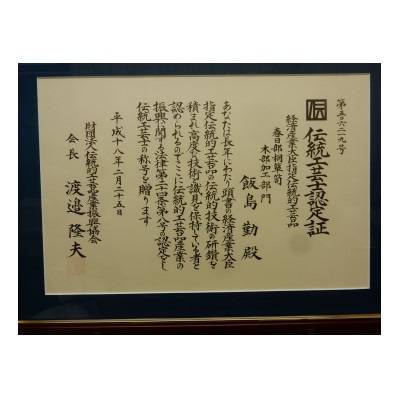 第五六二九号
伝
伝統工芸士認定証
経済産業大臣指定伝統的工芸品
春日部桐簞笥
木部加工部門
飯島勤殿
あなたは長年にわたり頭書の経済産業大臣
指定伝統的工芸品の伝統的技術の研鑽を
積まれ高度の技術と識見を保持している者と
認められるのでここに伝統的工芸品産業の
振興に関する法律第二十四条第八号の認定をし
伝統工芸士の称号を贈ります
平成十八年二月二十五日
財団法人伝統的工芸品産業振興協会
会長 渡邉隆夫